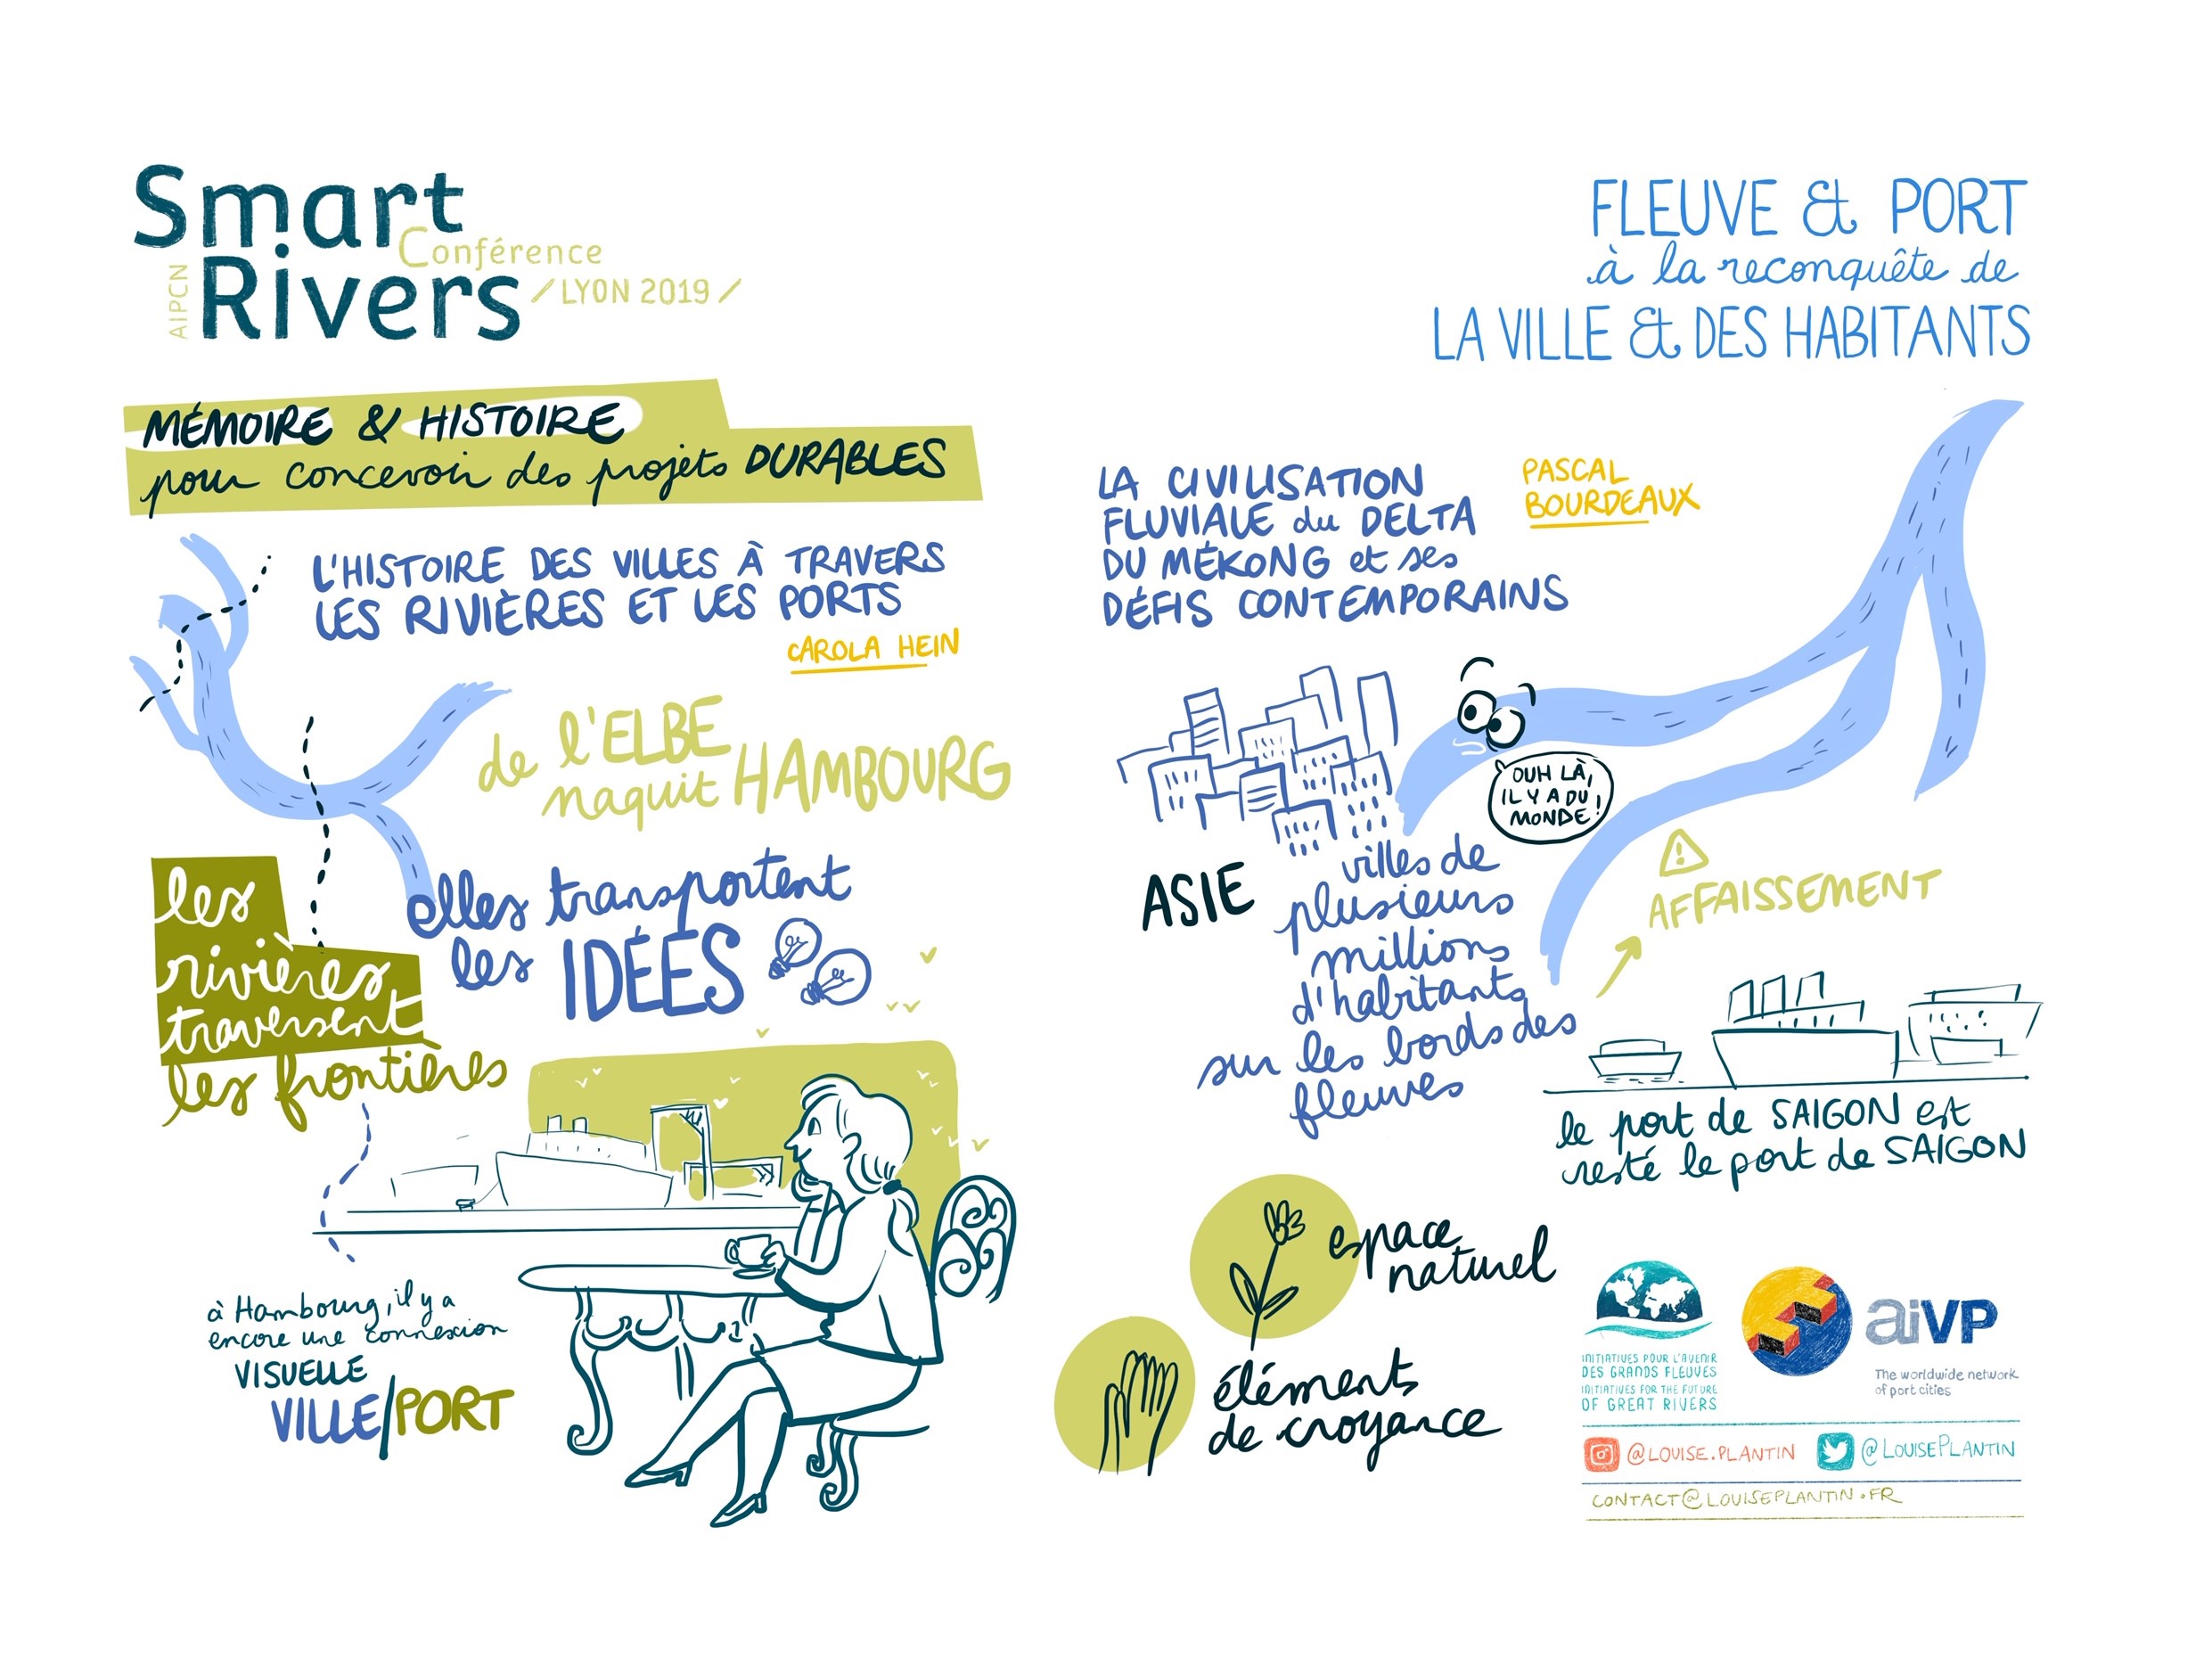 Smart
Conférence
AIPCN
Rivers
/ LYON 2019 /
FLEUVE et PORT
à la reconquête de
LA VILLE et DES HABITANTS
MÉMOIRE & HISTOIRE
pour concevoir des projets DURABLES
L'HISTOIRE DES VILLES À TRAVERS
LES RIVIÈRES ET LES PORTS
CAROLA HEIN
de l'ELBE
naquit HAMBOURG
les
rivières
traversent
les frontières
elles transportent
les IDÉES
à Hambourg, il y a
encore une connexion
VISUELLE
VILLE/PORT
LA CIVILISATION
FLUVIALE du DELTA
DU MÉKONG et ses
DÉFIS CONTEMPORAINS
PASCAL
BOURDEAUX
OUH LÀ,
IL Y A DU
MONDE !
ASIE
villes de
plusieurs
millions
d'habitants
sur les bords des
fleuves
AFFAISSEMENT
le port de SAIGON est
resté le port de SAIGON
espace
naturel
éléments
de croyance
INITIATIVES POUR L'AVENIR
DES GRANDS FLEUVES
INITIATIVES FOR THE FUTURE
OF GREAT RIVERS
aiVP
The worldwide network
of port cities
@LOUISE.PLANTIN
@LOUISEPLANTIN
CONTACT@LOUISEPLANTIN.FR